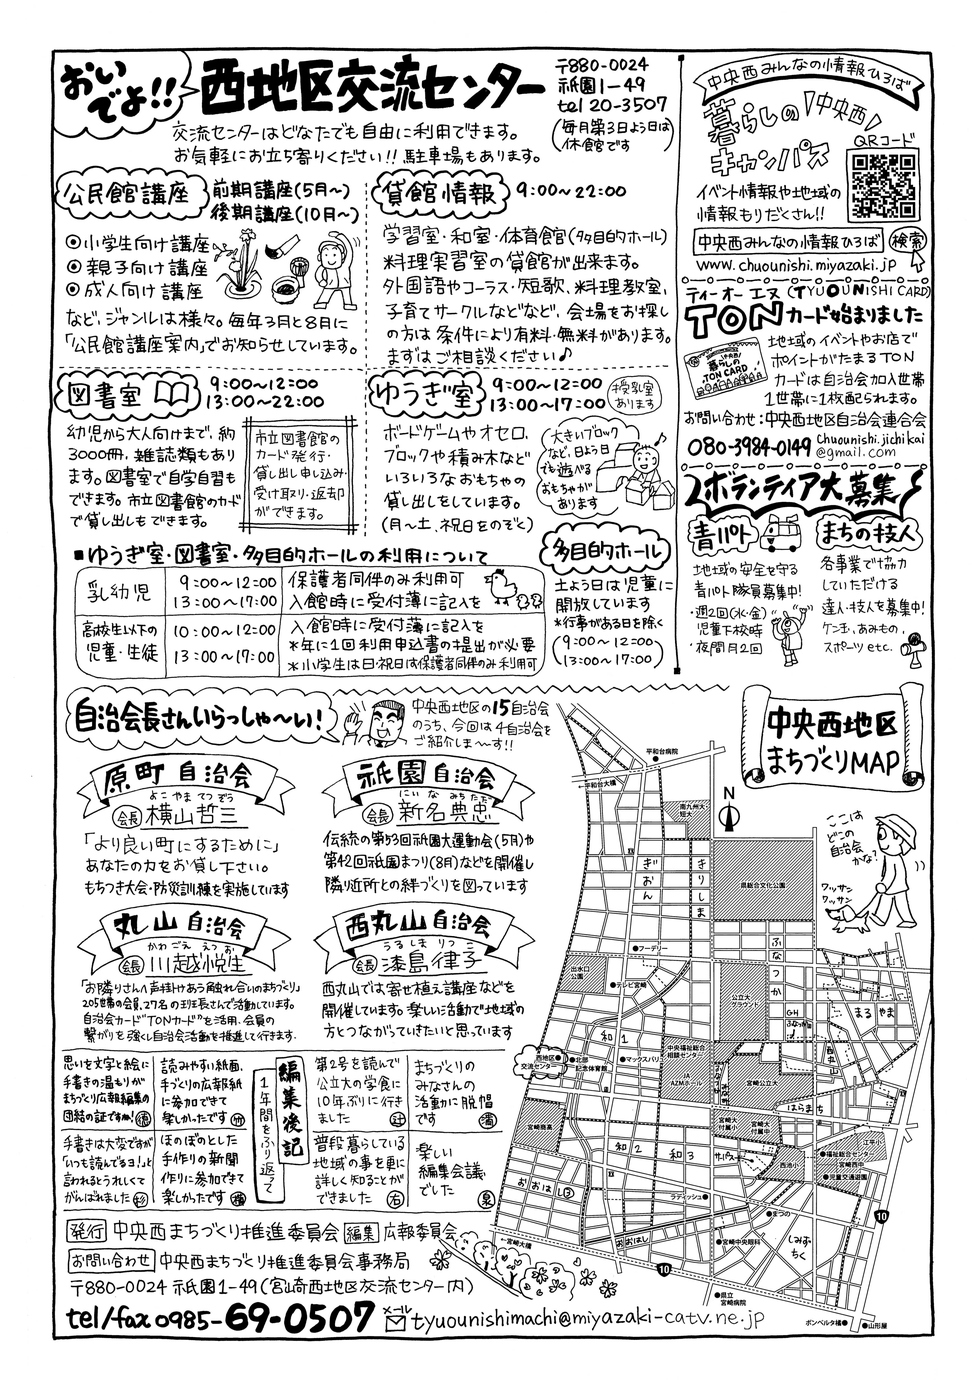 おいでよ!!
西地区交流センター
〒880-0024
祇園1-49
tel 20-3507
(毎月第3日よう日は
休館です)
交流センターはどなたでも自由に利用できます。
お気軽にお立ち寄りください!! 駐車場もあります。
公民館講座
前期講座(5月〜)
後期講座(10月〜)
◉小学生向け講座
◉親子向け講座
◉成人向け講座
など、ジャンルは様々。毎年3月と8月に
「公民館講座案内」でお知らせしています。
貸館情報 9:00〜22:00
学習室・和室・体育館(多目的ホール)
料理実習室の貸館が出来ます。
外国語やコーラス・短歌、料理教室、
子育てサークルなどなど、会場をお探し
の方は条件により有料・無料があります。
まずはご相談ください♪
図書室
9:00〜12:00
13:00〜22:00
幼児から大人向けまで、約
3000冊、雑誌類もあり
ます。図書室で自学自習も
できます。市立図書館のカード
で貸し出しもできます。
市立図書館の
カード発行・
貸し出し申し込み・
受け取り・返却
ができます。
ゆうぎ室
9:00〜12:00
13:00〜17:00
授乳室
あります
ボードゲームやオセロ、
ブロックや積み木など
いろいろなおもちゃの
貸し出しをしています。
(月〜土、祝日をのぞく)
大きいブロック
など、日よう日
でも遊べる
おもちゃが
あります
■ゆうぎ室・図書室・多目的ホールの利用について
乳幼児
9:00〜12:00
13:00〜17:00
保護者同伴のみ利用可
入館時に受付簿に記入を
高校生以下の
児童・生徒
10:00〜12:00
13:00〜17:00
入館時に受付簿に記入を
*年に1回利用申込書の提出が必要
*小学生は日・祝日は保護者同伴のみ利用可
多目的ホール
土よう日は児童に
開放しています
*行事がある日を除く
(9:00〜12:00)
(13:00〜17:00)
中央西みんなの情報ひろば
暮らしの「中央西」
キャンパス
QRコード
イベント情報や地域の
情報もりだくさん!!
中央西みんなの情報ひろば 検索
www.chuounishi.miyazaki.jp
ティーオーエヌ (TYUOUNISHI CARD)
TONカード始まりました
暮らしの
TON CARD
地域のイベントやお店で
ポイントがたまるTON
カードは自治会加入世帯
1世帯に1枚配られます。
お問い合わせ:中央西地区自治会連合会
080-3984-0149
chuounishi.jichikai
@gmail.com
ボランティア大募集
青パト
地域の安全を守る
青パト隊員募集中!
・週2回(水・金)
児童下校時
・夜間月2回
まちの技人
各事業で協力
していただける
達人・技人を募集中!
ケン玉、あみもの、
スポーツ etc.
自治会長さんいらっしゃ〜い!
中央西地区の15自治会
のうち、今回は4自治会を
ご紹介しま〜す!!
原町 自治会
よこやま てつぞう
会長 横山哲三
「より良い町にするために」
あなたの力をお貸し下さい。
もちつき大会・防災訓練を実施しています
祇園自治会
にいな みちただ
会長 新名典忠
伝統の第53回祇園大運動会(5月)や
第42回祇園まつり(8月)などを開催し
隣り近所との絆づくりを図っています
丸山 自治会
かわごえ えつお
会長 川越悦生
「お隣りさんへ声掛けあう触れ合いのまちづくり」
205世帯の会員、27名の班長さんで活動しています。
自治会カード“TONカード”を活用、会員の
繋がりを強くし自治会活動を推進して行きます。
西丸山 自治会
うるしま りつこ
会長 漆島律子
西丸山では寄せ植え講座などを
開催しています。楽しい活動で地域の
方とつながっていきたいと思っています
編集後記
1年間をふり返って
思いを文字と絵に
手書きの温もりが
まちづくり広報編集の
団結の証ですね!
読みやすい紙面、
手づくりの広報紙
に参加できて
楽しかったです 竹
手書きは大変ですが
「いつも読んでるヨ!」と
言われるとうれしくて
がんばれました 杉
ほのぼのとした
手作りの新聞
作りに参加できて
楽しかったです
第2号を読んで
公立大の学食に
10年ぶりに行き
ました 辻
まちづくりの
みなさんの
活動に脱帽
です
普段暮らしている
地域の事を更に
詳しく知ることが
できました 右
楽しい
編集会議
でした 泉
発行 中央西まちづくり推進委員会 編集 広報委員会
お問い合わせ 中央西まちづくり推進委員会事務局
〒880-0024 祇園1-49(宮崎西地区交流センター内)
tel/fax 0985-69-0507 メール tyuounishimachi@miyazaki-catv.ne.jp
中央西地区
まちづくりMAP
N
ここは
どこの
自治会
かな?
ワッサン
ワッサン
平和台病院
←平和台大橋
南九州大
短大
ぎおん
きりしま
県総合文化公園
フーデリー
出水口
公園
テレビ宮崎
ふなつか
公立大
グラウンド
GH
まるやま
西丸山
和1
西地区
交流センター
北部
記念体育館
マックスバリュ
中央福祉総合
相談センター
JA
AZMホール
宮崎公立大
はらまち
宮崎商高
宮崎大
付属小
宮崎大
付属中
江平小
総合福祉センター
宮崎西中
児童交通遊園
西池小
和2
和3
おおはし3
ラディッシュ
まつの
宮崎中央眼科
おおはし
しみずちく
10
10
←宮崎大橋
県立
宮崎病院
ボンベルタ橘
山形屋